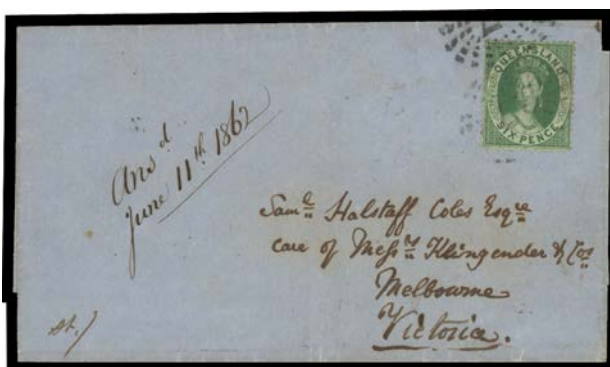 QUEENSLAND
SIX PENCE
Ans d
June 11th 1862
Saml Halstaff Coles Esqre
care of Messrs Klingender & Cos
Melbourne
Victoria.